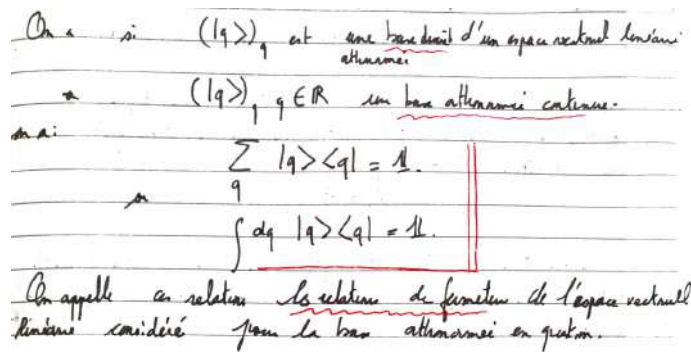 On a si (|q>)_q est une base discrèt d'un espace vectoriel linéaire
othonormei
(|q>)_q q ∈ ℝ une base othonormeé continue.
on a:
∑_q |q><q| = 𝟙.
ou
∫ dq |q><q| = 𝟙.
On appelle ces relations les relations de fermeture de l'espace vectoriel
linéaire considéré pour la base othonormeé en question.